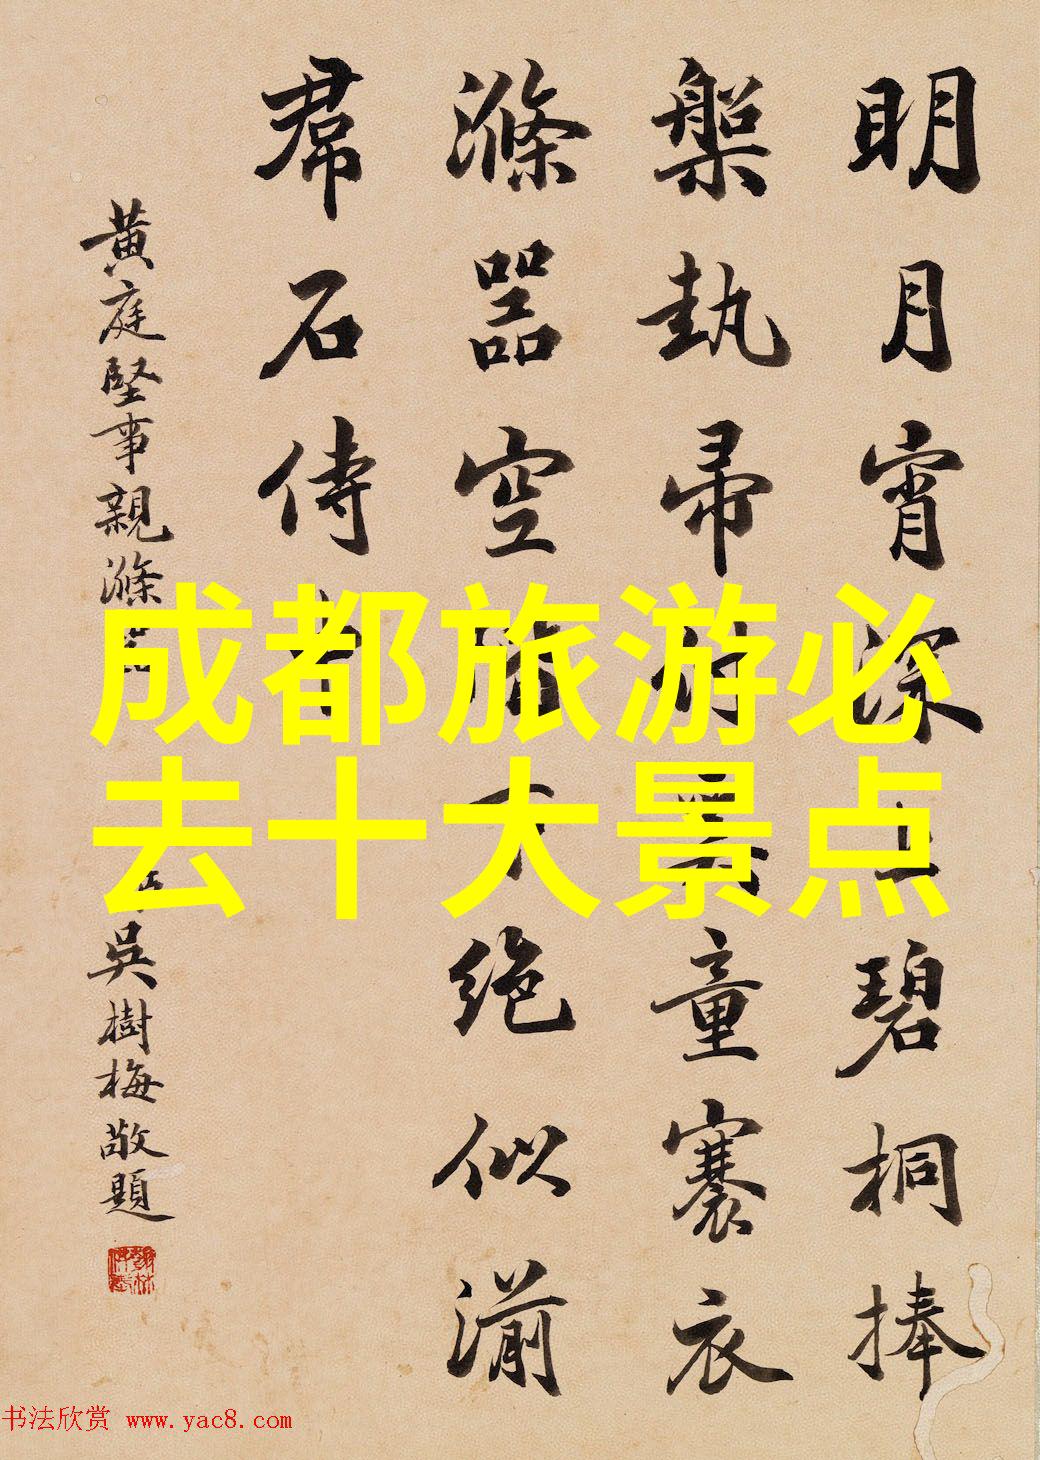 明月宵深上碧桐捧
槃執帚付童褰衣
滌器空不絶似湔
帬石侍中
黄庭堅事親滌吳樹梅敬題
成都旅游必
去十大景点
书法欣赏 www.yac8.com